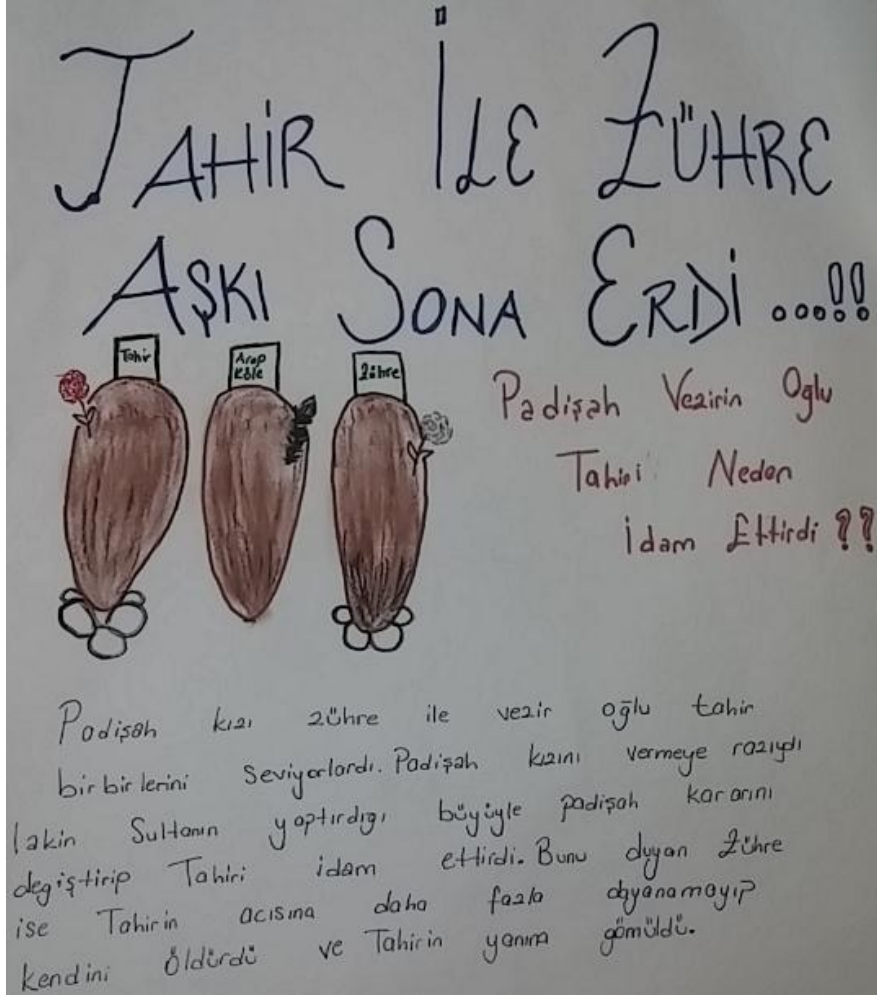 TAHİR İLE ZÜHRE
AŞKI SONA ERDİ...!!
Tahir
Arap
Köle
Zühre
Padişah Vezirin Oglu
Tahiri Neden
İdam Ettirdi ??
Padişah kızı zühre ile vezir oğlu tahir
birbirlerini seviyorlardı. Padişah kızını vermeye razıydı
lakin Sultanın yaptırdıgı büyüyle padişah kararını
degiştirip Tahiri idam ettirdi. Bunu duyan Zühre
ise Tahirin acısına daha fazla dayanamayıp
kendini öldürdü ve Tahirin yanına gömüldü.